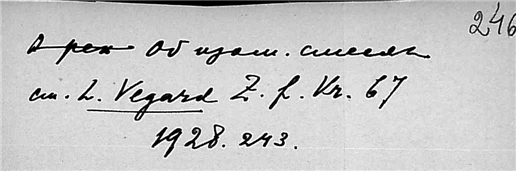 246
Об изом. смесях
см. L. Vegard Z. f. Kr. 67
1928. 243.